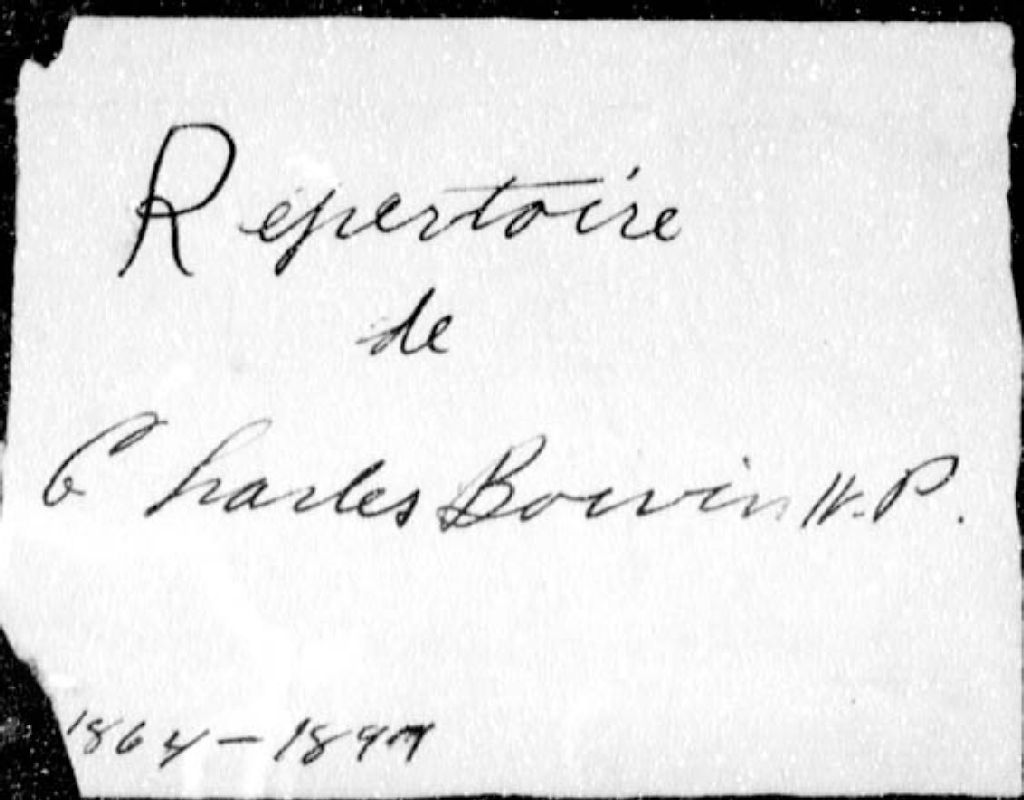 Repertoire
de
Charles Boivin N.P.
1864-1897